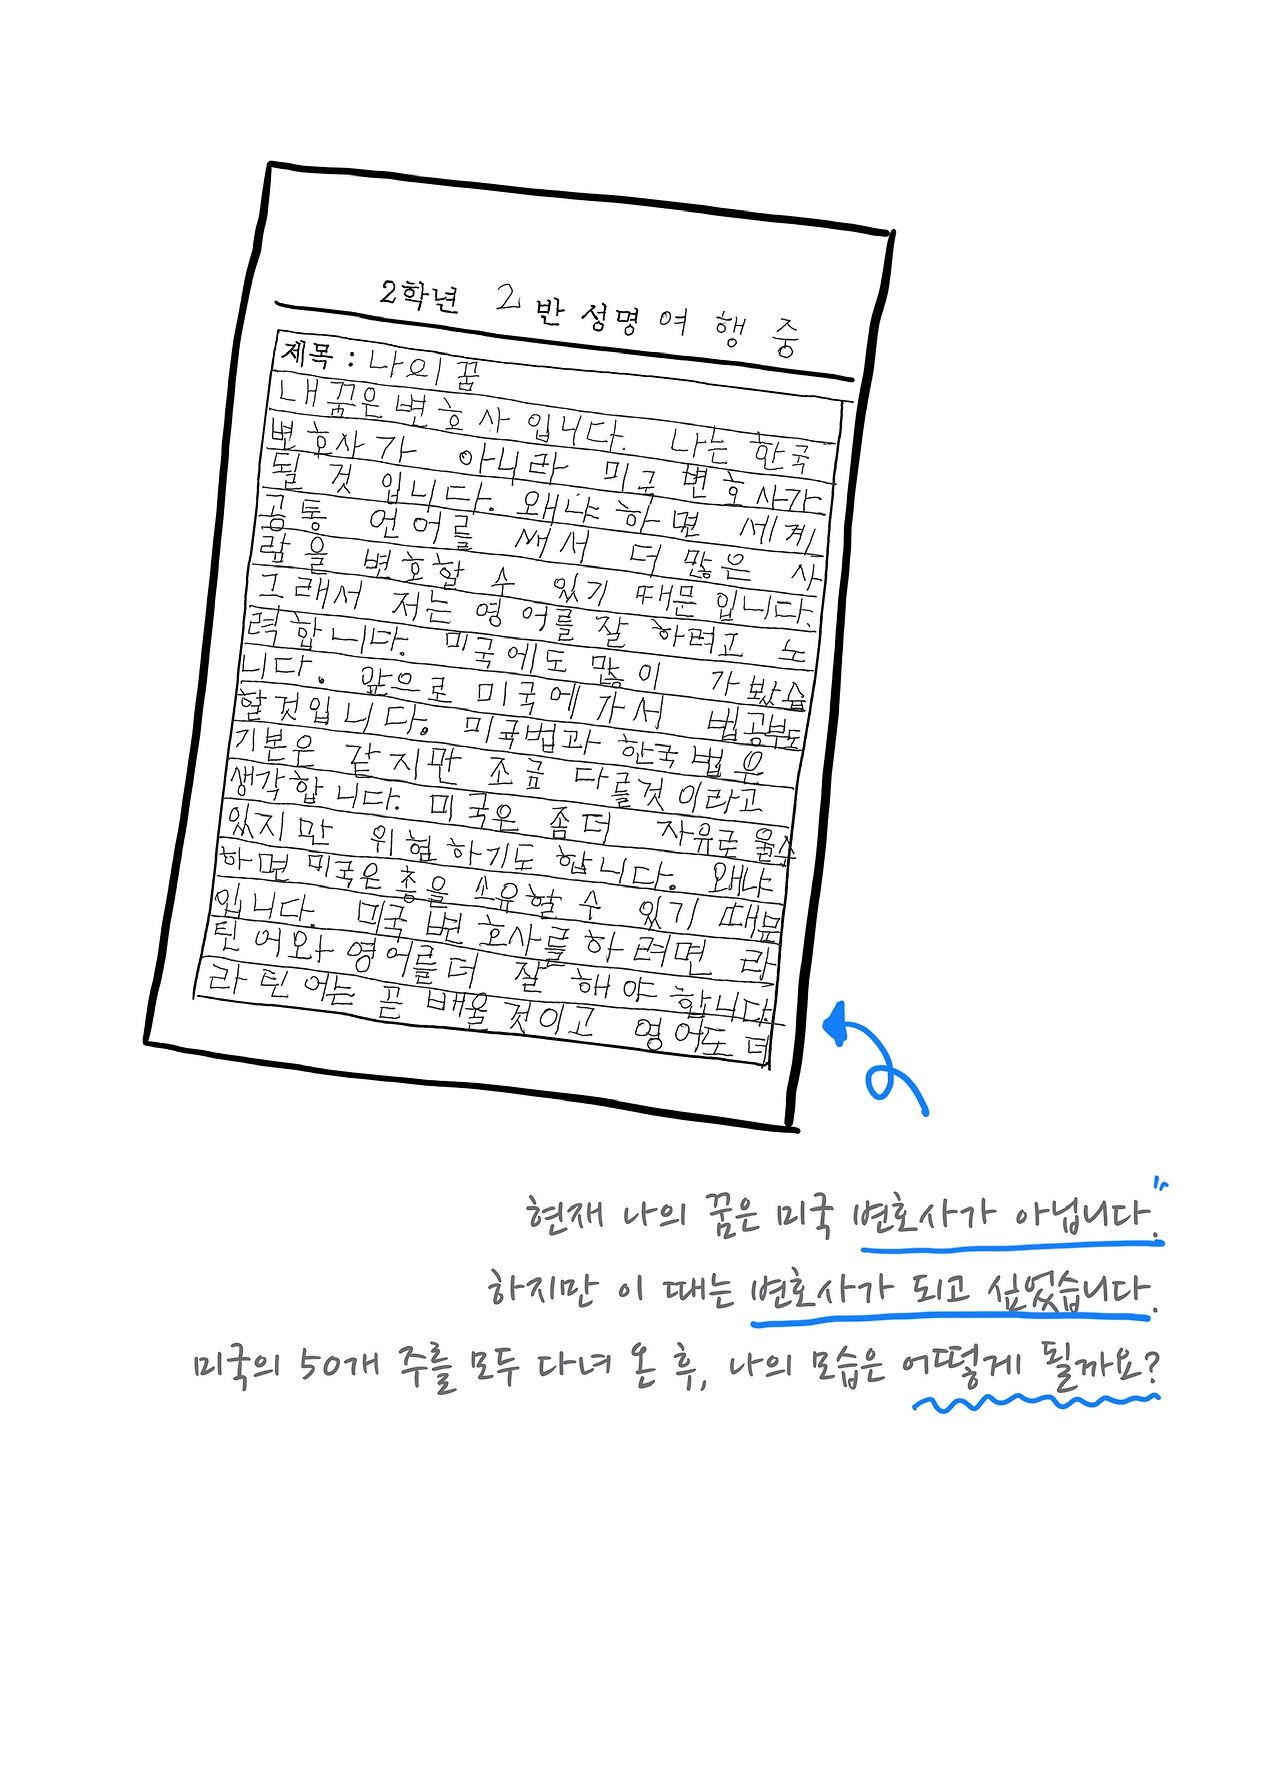 2학년 2반 성명 여행중
제목 : 나의 꿈
내 꿈은 변호사 입니다. 나는 한국
변호사가 아니라 미국 변호사가
될 것 입니다. 왜냐하면 세계
공통 언어를 써서 더 많은 사
람을 변호할 수 있기 때문입니다.
그래서 저는 영어를 잘 하려고 노
력합니다. 미국에도 많이 가봤습
니다. 앞으로 미국에 가서 법공부도
할것입니다. 미국법과 한국법은
기본은 같지만 조금 다를것이라고
생각합니다. 미국은 좀더 자유로울수
있지만 위험하기도 합니다. 왜냐
하면 미국은 총을 소유할 수 있기 때문
입니다. 미국 변호사를 하려면 라
틴어와 영어를 더 잘 해야 합니다.
라틴어는 곧 배울것이고 영어도 더
현재 나의 꿈은 미국 변호사가 아닙니다.
하지만 이 때는 변호사가 되고 싶었습니다.
미국의 50개 주를 모두 다녀 온 후, 나의 모습은 어떻게 될까요?